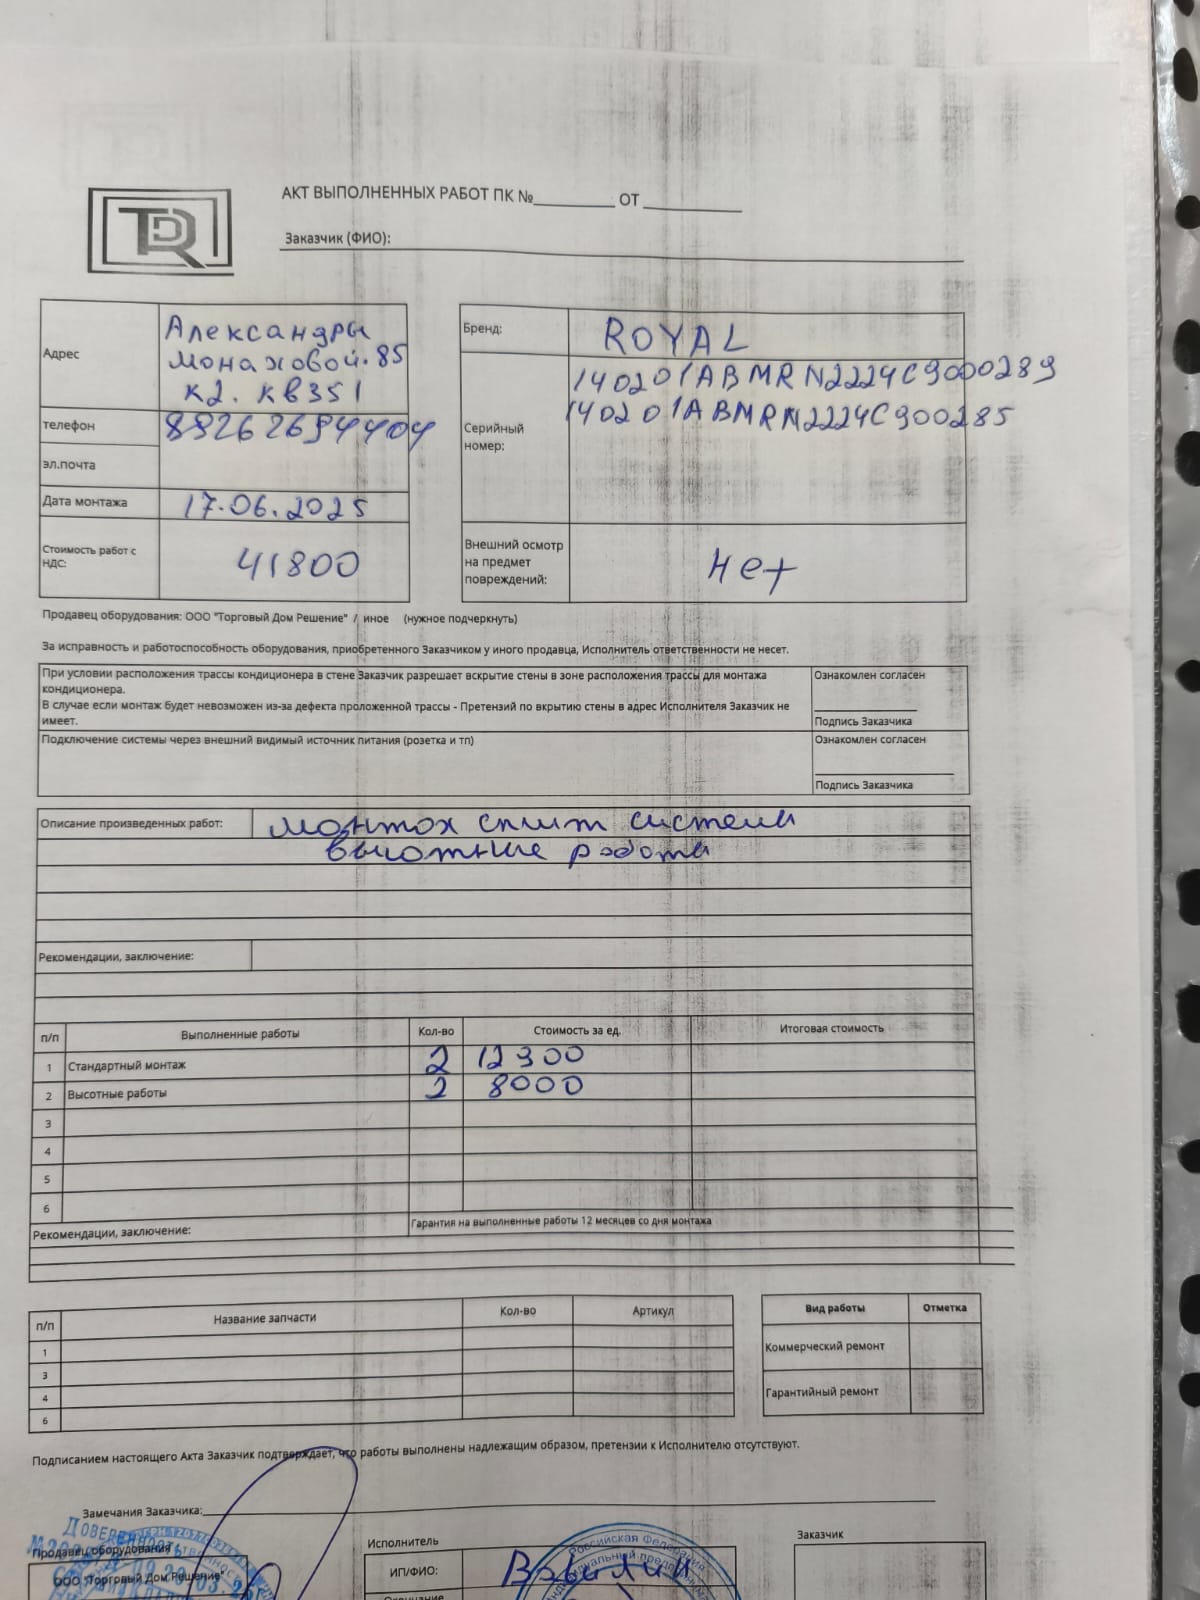 TDR
АКТ ВЫПОЛНЕННЫХ РАБОТ ПК №_________ ОТ ___________
Заказчик (ФИО):
Адрес
Александры
Монаховой.85
к2. кв351
телефон
89262694404
эл.почта
Дата монтажа
17.06.2025
Стоимость работ с
НДС:
41800
Бренд:
ROYAL
Серийный
номер:
140201ABMRN2224C9000289
140201ABMRN2224C900285
Внешний осмотр
на предмет
повреждений:
Нет
Продавец оборудования: ООО "Торговый Дом Решение" / иное (нужное подчеркнуть)
За исправность и работоспособность оборудования, приобретенного Заказчиком у иного продавца, Исполнитель ответственности не несет.
При условии расположения трассы кондиционера в стене Заказчик разрешает вскрытие стены в зоне расположения трассы для монтажа
кондиционера.
В случае если монтаж будет невозможен из-за дефекта проложенной трассы - Претензий по вкрытию стены в адрес Исполнителя Заказчик не
имеет.
Ознакомлен согласен
Подпись Заказчика
Подключение системы через внешний видимый источник питания (розетка и тп)
Ознакомлен согласен
Подпись Заказчика
Описание произведенных работ: монтож сплит системы
высотные работы
Рекомендации, заключение:
п/п Выполненные работы Кол-во Стоимость за ед. Итоговая стоимость
1 Стандартный монтаж 2 12900
2 Высотные работы 2 8000
3
4
5
6
Гарантия на выполненные работы 12 месяцев со дня монтажа
Рекомендации, заключение:
п/п Название запчасти Кол-во Артикул
1
3
4
6
Вид работы Отметка
Коммерческий ремонт
Гарантийный ремонт
Подписанием настоящего Акта Заказчик подтверждает, что работы выполнены надлежащим образом, претензии к Исполнителю отсутствуют.
Замечания Заказчика:
Доверенность
Продавец оборудования
ООО "Торговый Дом Решение"
Исполнитель
ИП/ФИО:
Российская Федерация
Заказчик